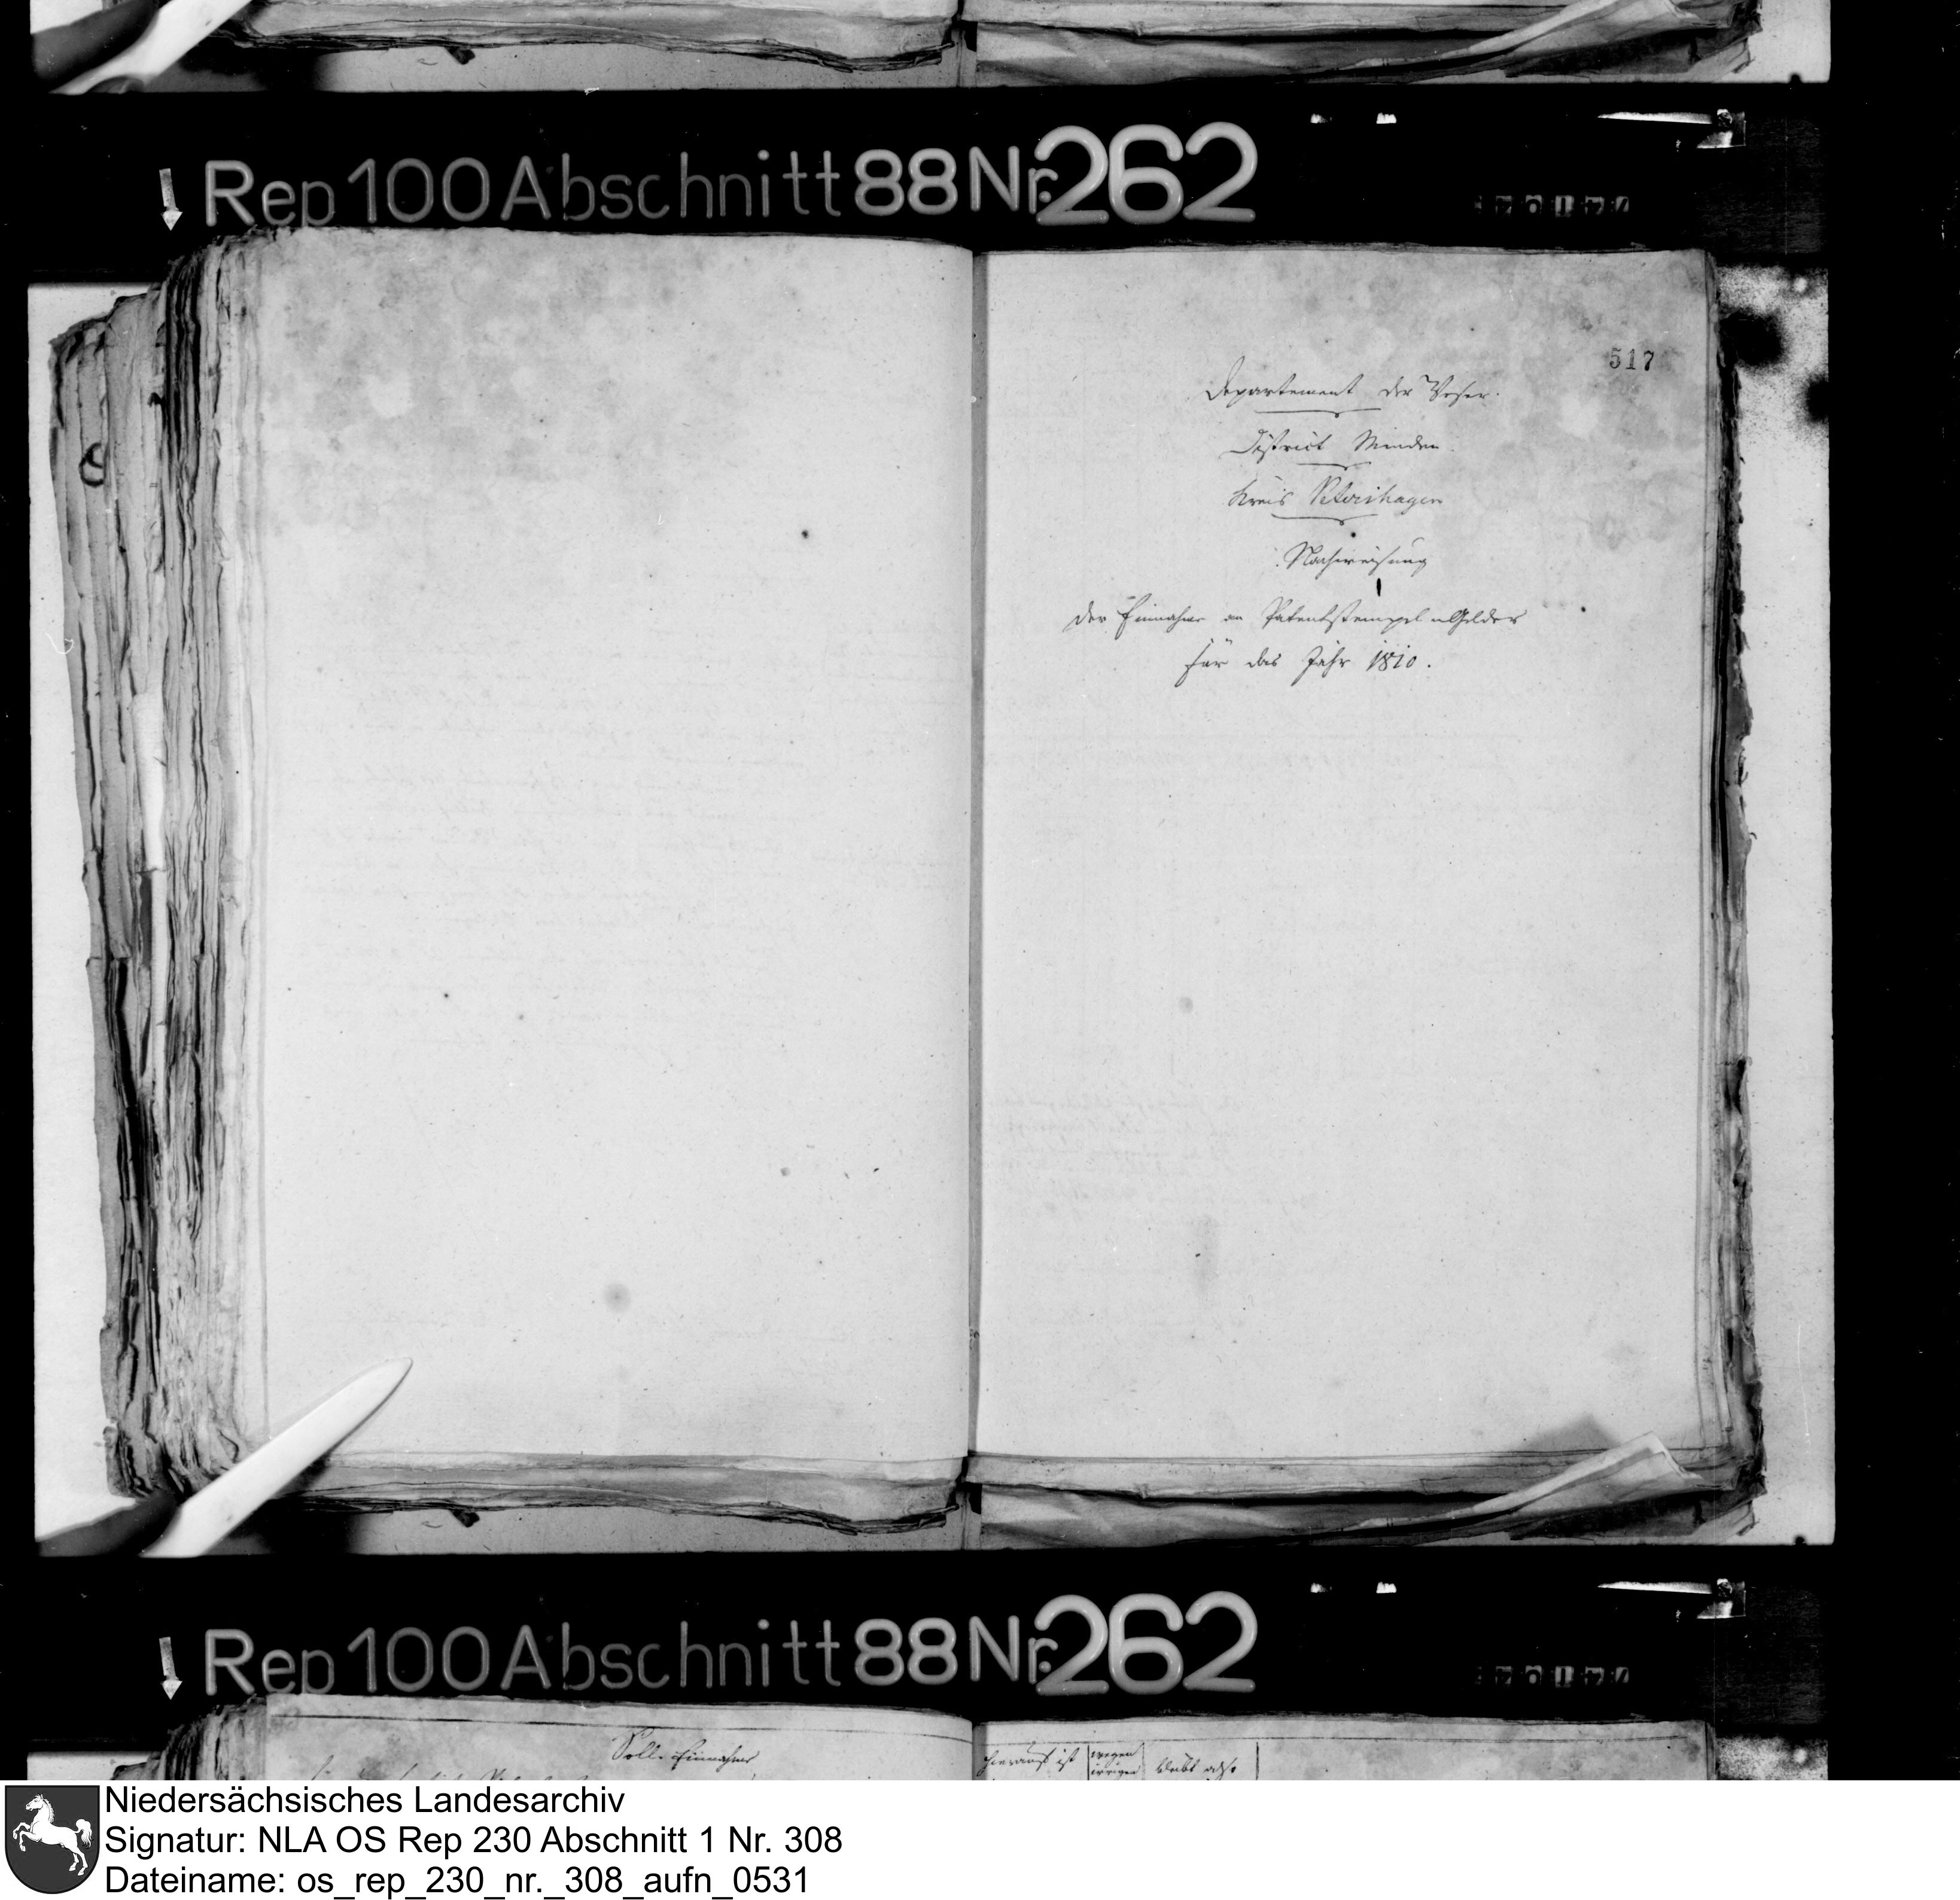 Rep 100 Abschnitt 88 Nr. 262
517
Departement der Weser.
District Minden
Kreis Petershagen
Nachweisung
der Einnahme an Patentstempel Gelder
für das Jahr 1810.
Rep 100 Abschnitt 88 Nr. 262
Soll Einnahme
hierauf ist
wegen
irrigen
bleibt also
Niedersächsisches Landesarchiv
Signatur: NLA OS Rep 230 Abschnitt 1 Nr. 308
Dateiname: os_rep_230_nr._308_aufn_0531